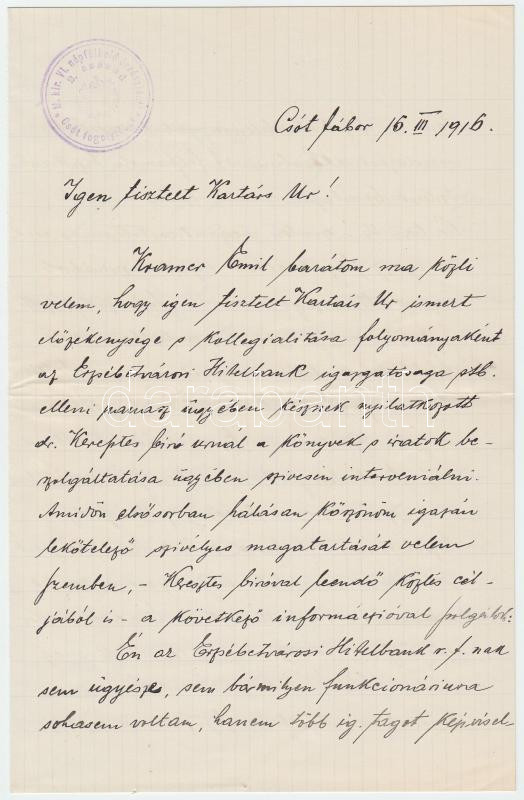 Csót tábor 16. III 1916.
Igen tisztelt Kartárs Ur!
Kramer Emil barátom ma közli
velem, hogy igen tisztelt Kartárs Ur ismert
előzékenysége s kollegialitása folyományaként
az Erzsébetvárosi Hitelbank igazgatósága stb.
elleni panasz ügyében késznek nyilatkozott
dr. Keresztes biró urnál a könyvek s iratok be-
szolgáltatása ügyében szivesen interveniálni.
Amidőn elsősorban hálásan köszönöm igazán
lekötelező szivélyes magatartását velem
szemben, - Keresztes biróval leendő közlés cél-
jából is - a következő információval szolgálok:
Én az Erzsébetvárosi Hitelbank r. t. nak
sem ügyésze, sem bármilyen funkcionáriusa
sohasem voltam, hanem több ig. tagot képvisel-
darabanth